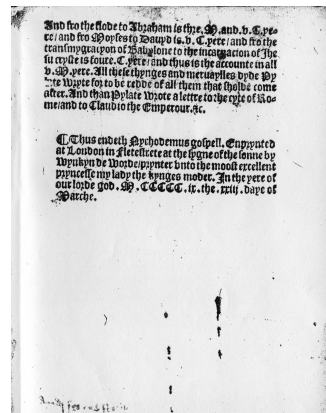 And fro the flode to Abraham is thre. M. and. v. C. ye-
re/ and fro Moyses to Dauyd is. v. C. yere/ and fro the
transmygracyon of Babylone to the incarnacion of Jhe
su cryste is foure. C. yere/ and thus is the accounte in all
v. M. yere. All these thynges and meruaylles dyde Py
late wryte for to be redde of all them that sholde come
after. And than Pylate wrote a lettre to the cyte of Ro-
me/ and to Claudio the Emperour. &c.
¶ Thus endeth Nychodemus gospell. Enprynted
at London in Fletestrete at the sygne of the sonne by
Wynkyn de Worde/ prynter vnto the moost excellent
pryncesse my lady the kynges moder. In the yere of
our lorde god. M. CCCCC. ix. the. xxiij. daye of
Marche.